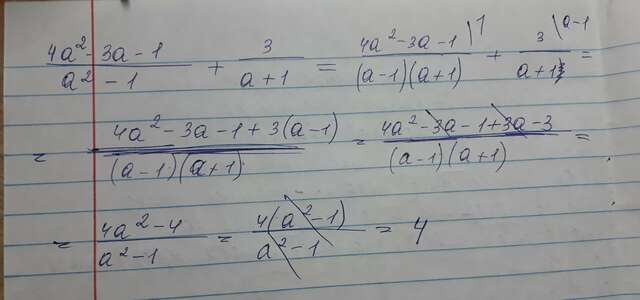 (4a² - 3a - 1)/(a² - 1) + 3/(a + 1) = (4a² - 3a - 1)/((a - 1)(a + 1)) \1 + 3/(a + 1) \a-1 =
= (4a² - 3a - 1 + 3(a - 1))/((a - 1)(a + 1)) = (4a² - 3a - 1 + 3a - 3)/((a - 1)(a + 1)) =
= (4a² - 4)/(a² - 1) = 4(a² - 1)/(a² - 1) = 4